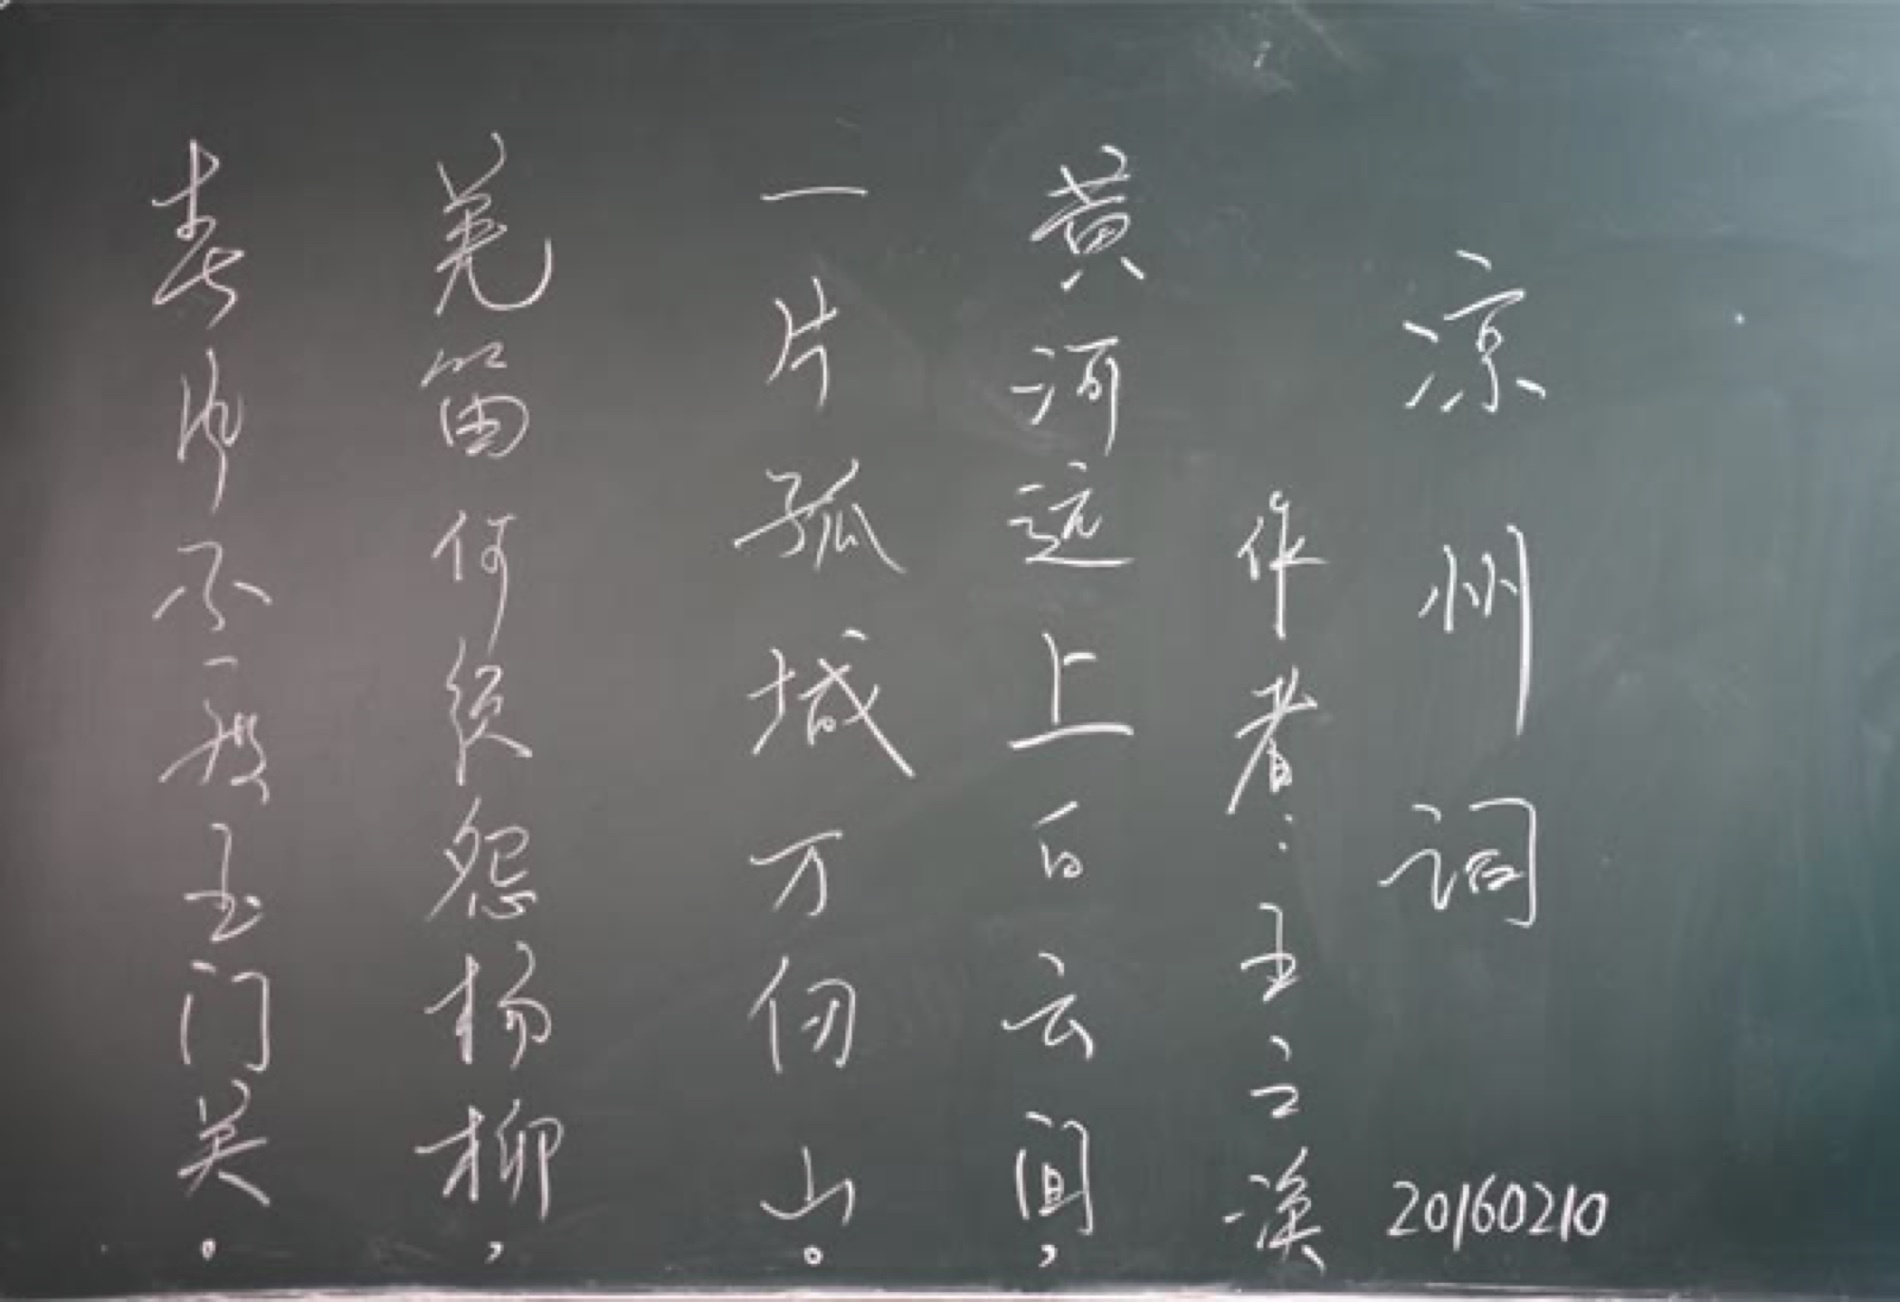 凉州词
20160210
作者:王之涣
黄河远上白云间,
一片孤城万仞山。
羌笛何须怨杨柳,
春风不度玉门关。